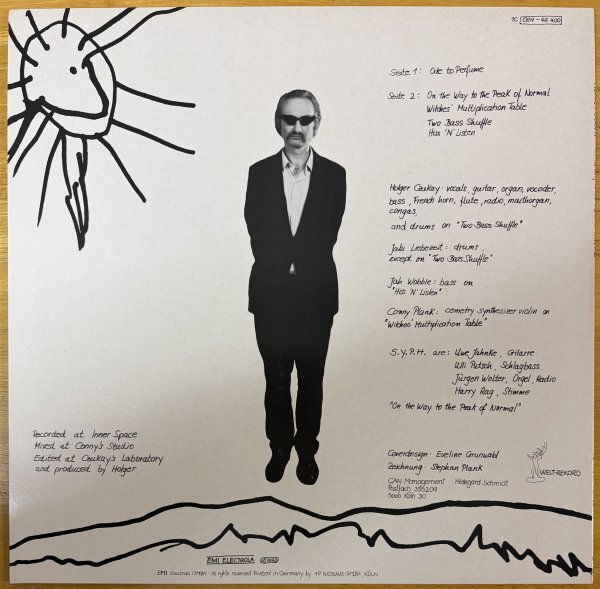 1C 064-46 400
Seite 1: Ode to Perfume
Seite 2: On the Way to the Peak of Normal
Witches' Multiplication Table
Two Bass Shuffle
Hiss 'N' Listen
Holger Czukay: vocals, guitar, organ, vocoder,
bass, French horn, flute, radio, mouthorgan,
congas,
and drums on "Two Bass Shuffle"
Jaki Liebezeit: drums,
except on "Two Bass Shuffle"
Jah Wobble: bass on
"Hiss 'N' Listen"
Conny Plank: cemetry synthesizer violin on
"Witches' Multiplication Table"
S.Y.P.H. are: Uwe Jahnke, Gitarre
Ulli Putsch, Schlagbass
Jürgen Wolter, Orgel, Radio
Harry Rag, Stimme
"On the Way to the Peak of Normal"
Recorded at Inner Space
Mixed at Conny's Studio
Edited at Czukay's Laboratory
and produced by Holger
Coverdesign: Eveline Grunwald
Zeichnung: Stephan Plank
CAN Management Hildegard Schmidt
Postfach 386209
5000 Köln 30
WELT-REKORD
EMI ELECTROLA
EMI Electrola GmbH · All rights reserved Printed in Germany by 4P NICOLAUS GMBH, KÖLN